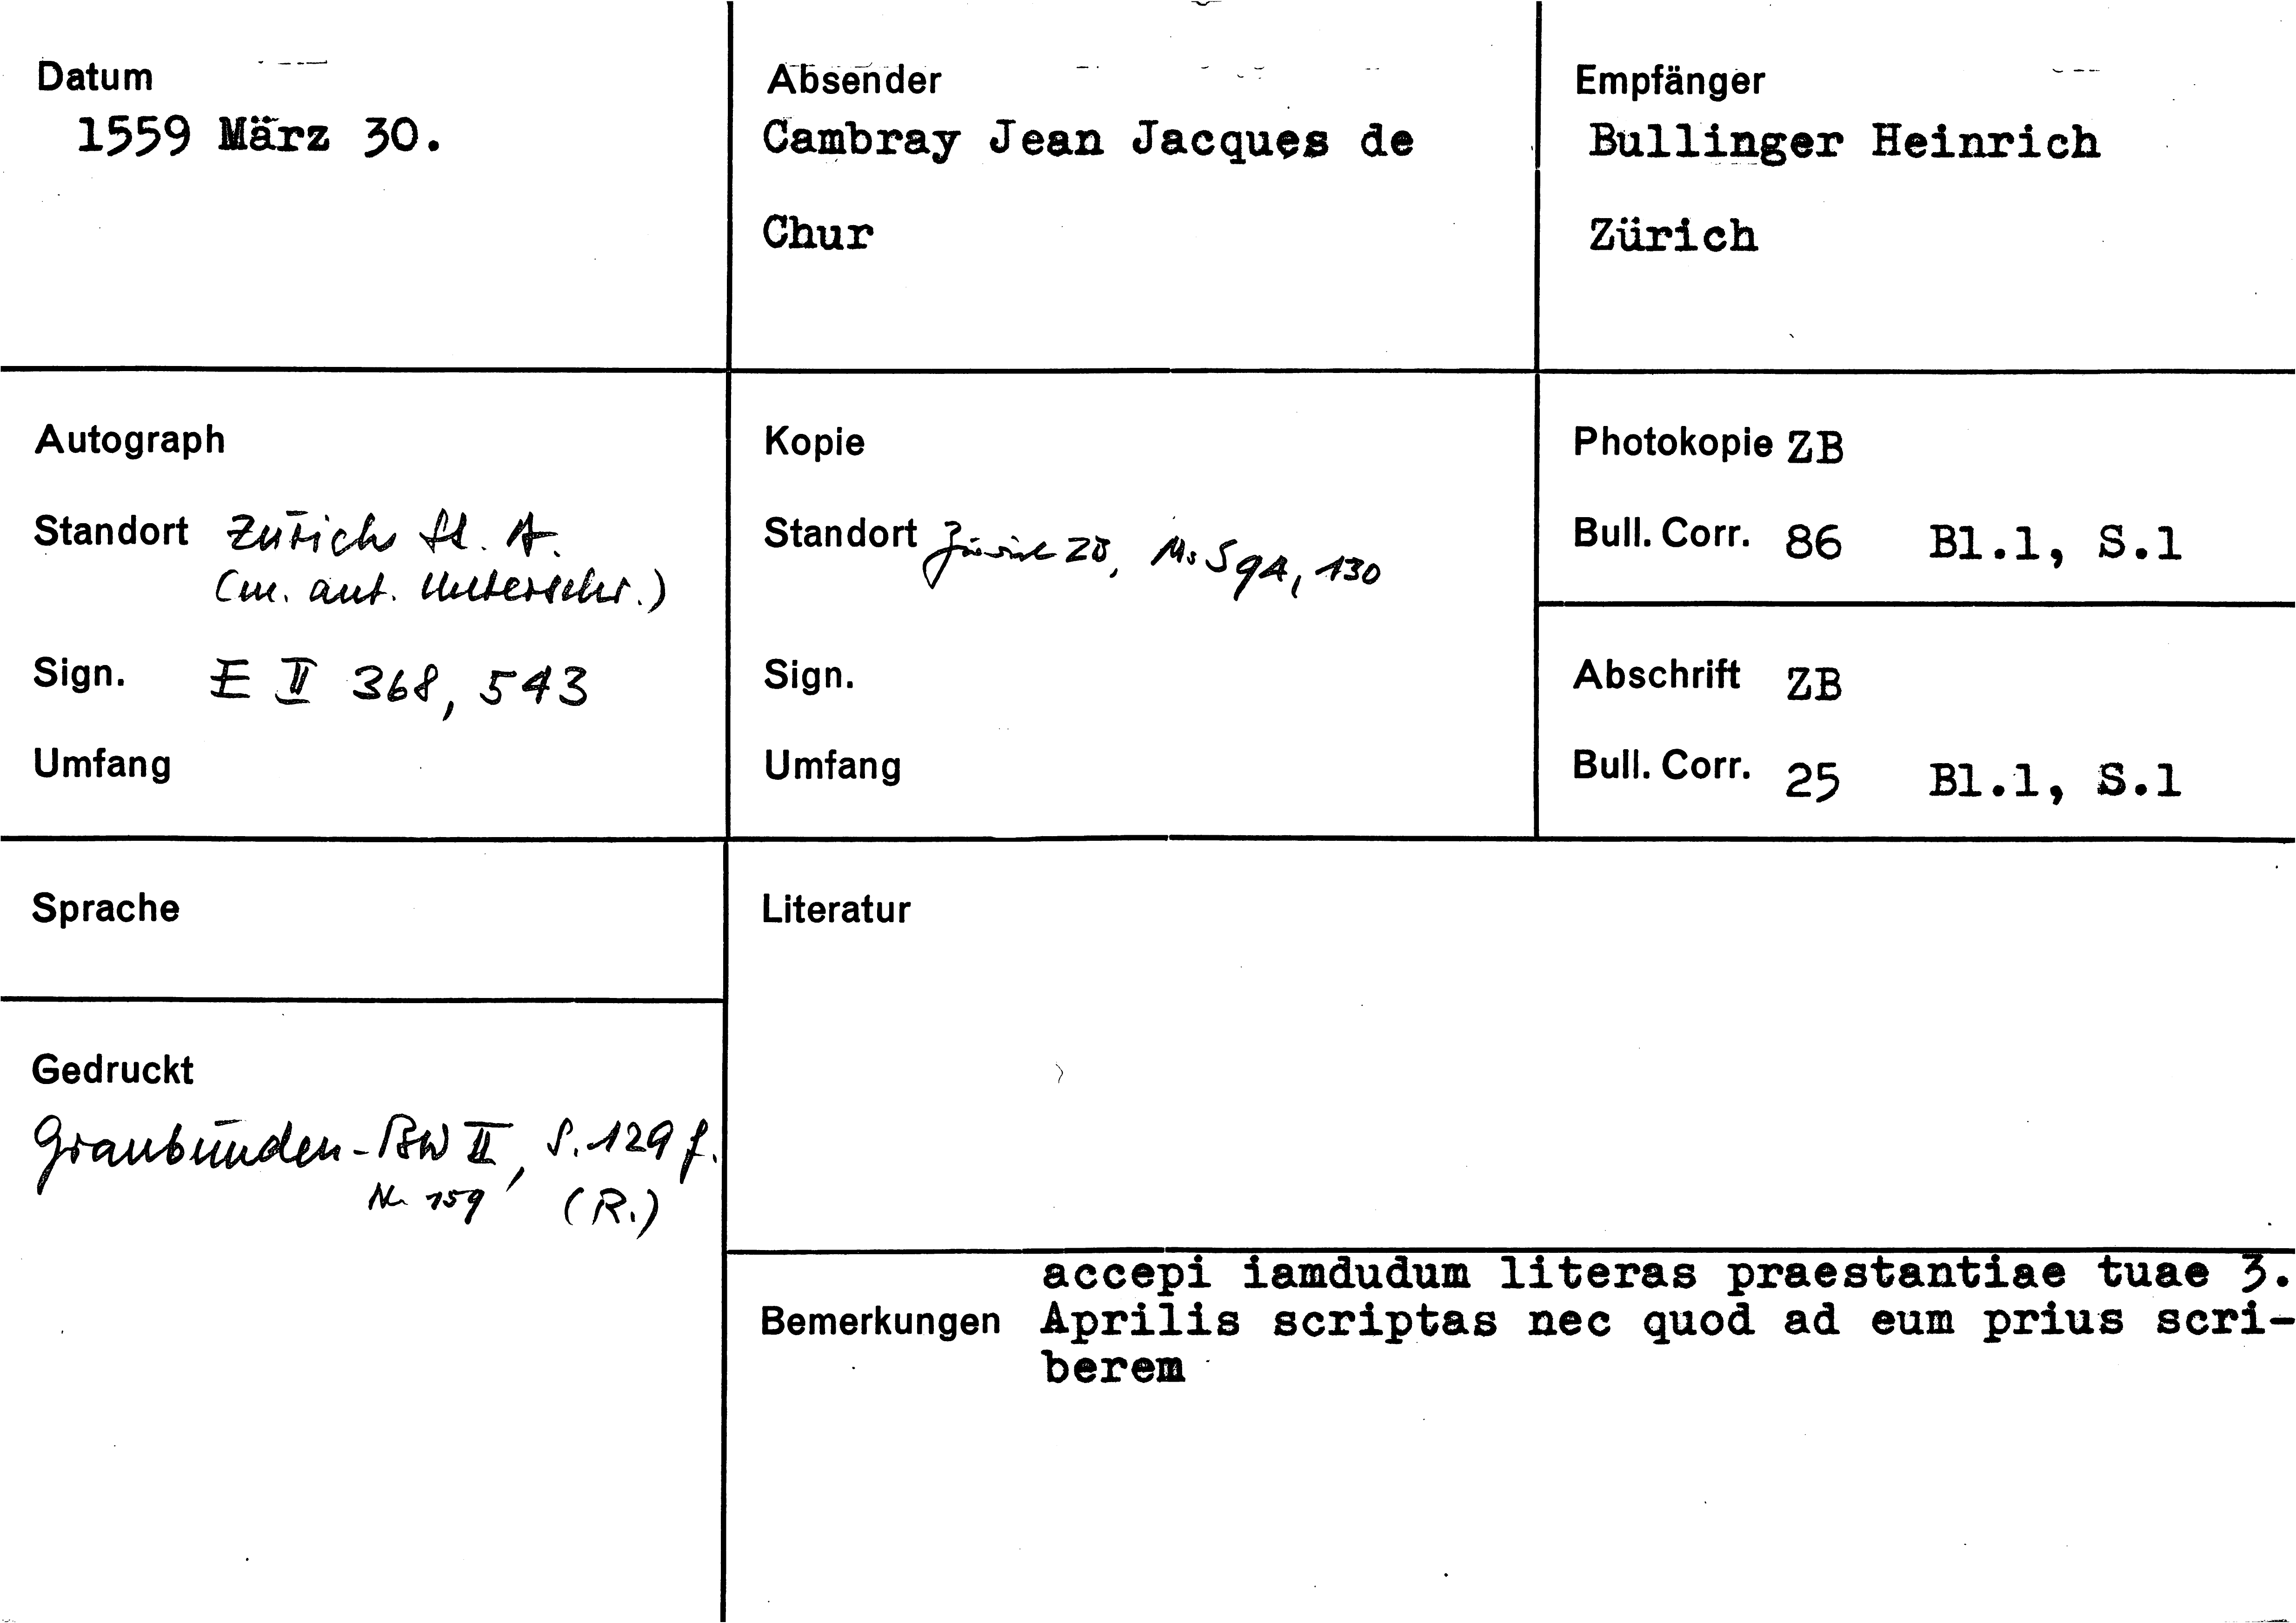 Datum
1559 März 30.
Absender
Cambray Jean Jacques de
Chur
Empfänger
Bullinger Heinrich
Zürich
Autograph
Standort Zürich St. A.
(m. aut. Unterschr.)
Sign. E II 368, 543
Umfang
Kopie
Standort Zürich ZB, Ms S 94, 130
Sign.
Umfang
Photokopie ZB
Bull. Corr. 86 Bl.1, S.1
Abschrift ZB
Bull. Corr. 25 Bl.1, S.1
Sprache
Literatur
Gedruckt
Graubünden-BW II, S. 129 f.
Nr 159 (R.)
Bemerkungen
accepi iamdudum literas praestantiae tuae 3.
Aprilis scriptas nec quod ad eum prius scri-
berem